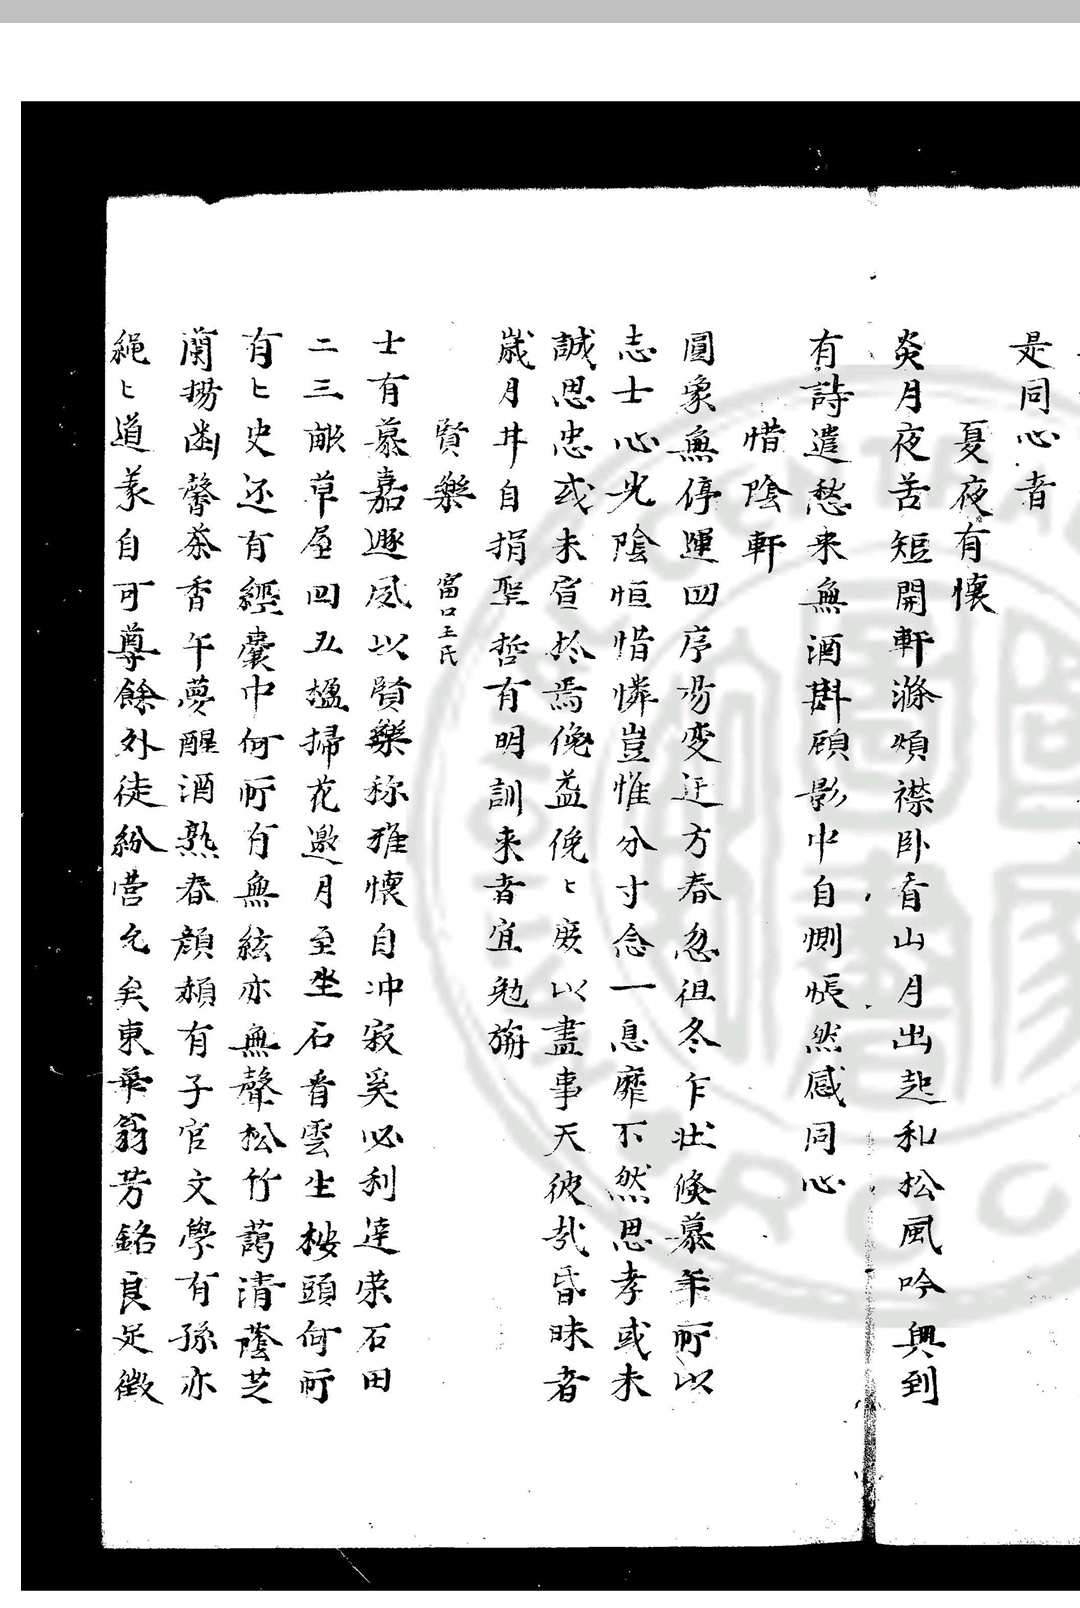 是同心者
夏夜有懷
炎月夜苦短開軒滌煩襟卧看山月出起和松風吟興到
有詩遣愁来無酒斟顾影中自惻悵然感同心
惜陰軒
圓象無停運四序易变迁方春忽徂冬乍壮倏慕年所以
志士心光陰恒惜憐豈惟分寸念一息靡不然思孝或未
誠思忠或未宣於焉俛益俛〻庶以盡事天彼哉昏昧者
歲月井自捐聖哲有明訓来者宜勉旃
賢樂 富口王氏
士有慕嘉遯夙以賢樂称雅懷自冲寂奚必利達荣石田
二三畝草屋四五楹掃花邀月至坐石看雲生桉頭何所
有〻史还有經囊中何所有無絃亦無聲松竹藹清蔭芝
蘭揚幽馨茶香午夢醒酒熟春顔赪有子官文學有孫亦
繩〻道義自可尊餘外徒紛营允矣東華翁芳銘良足徵